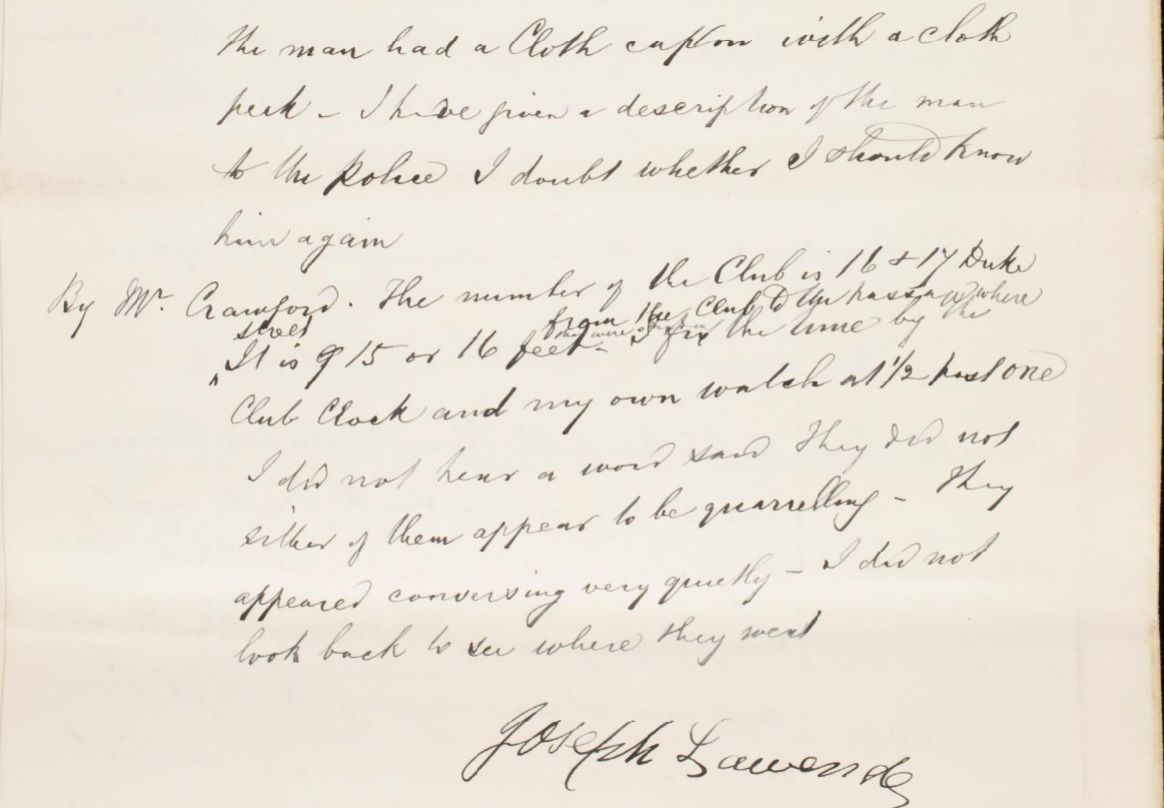 the man had a Cloth cap on with a cloth
peak - I have given a description of the man
to the police I doubt whether I should know
him again
By Mr. Crawford. The number of the Club is 16 & 17 Duke
street
from the Club to the passage where
they were standing
It is 9 15 or 16 feet - I fix the time by the
Club Clock and my own watch at 1/2 past one
I did not hear a word said They did not
either of them appear to be quarrelling - They
appeared conversing very quietly - I did not
look back to see where they went
Joseph Lawende